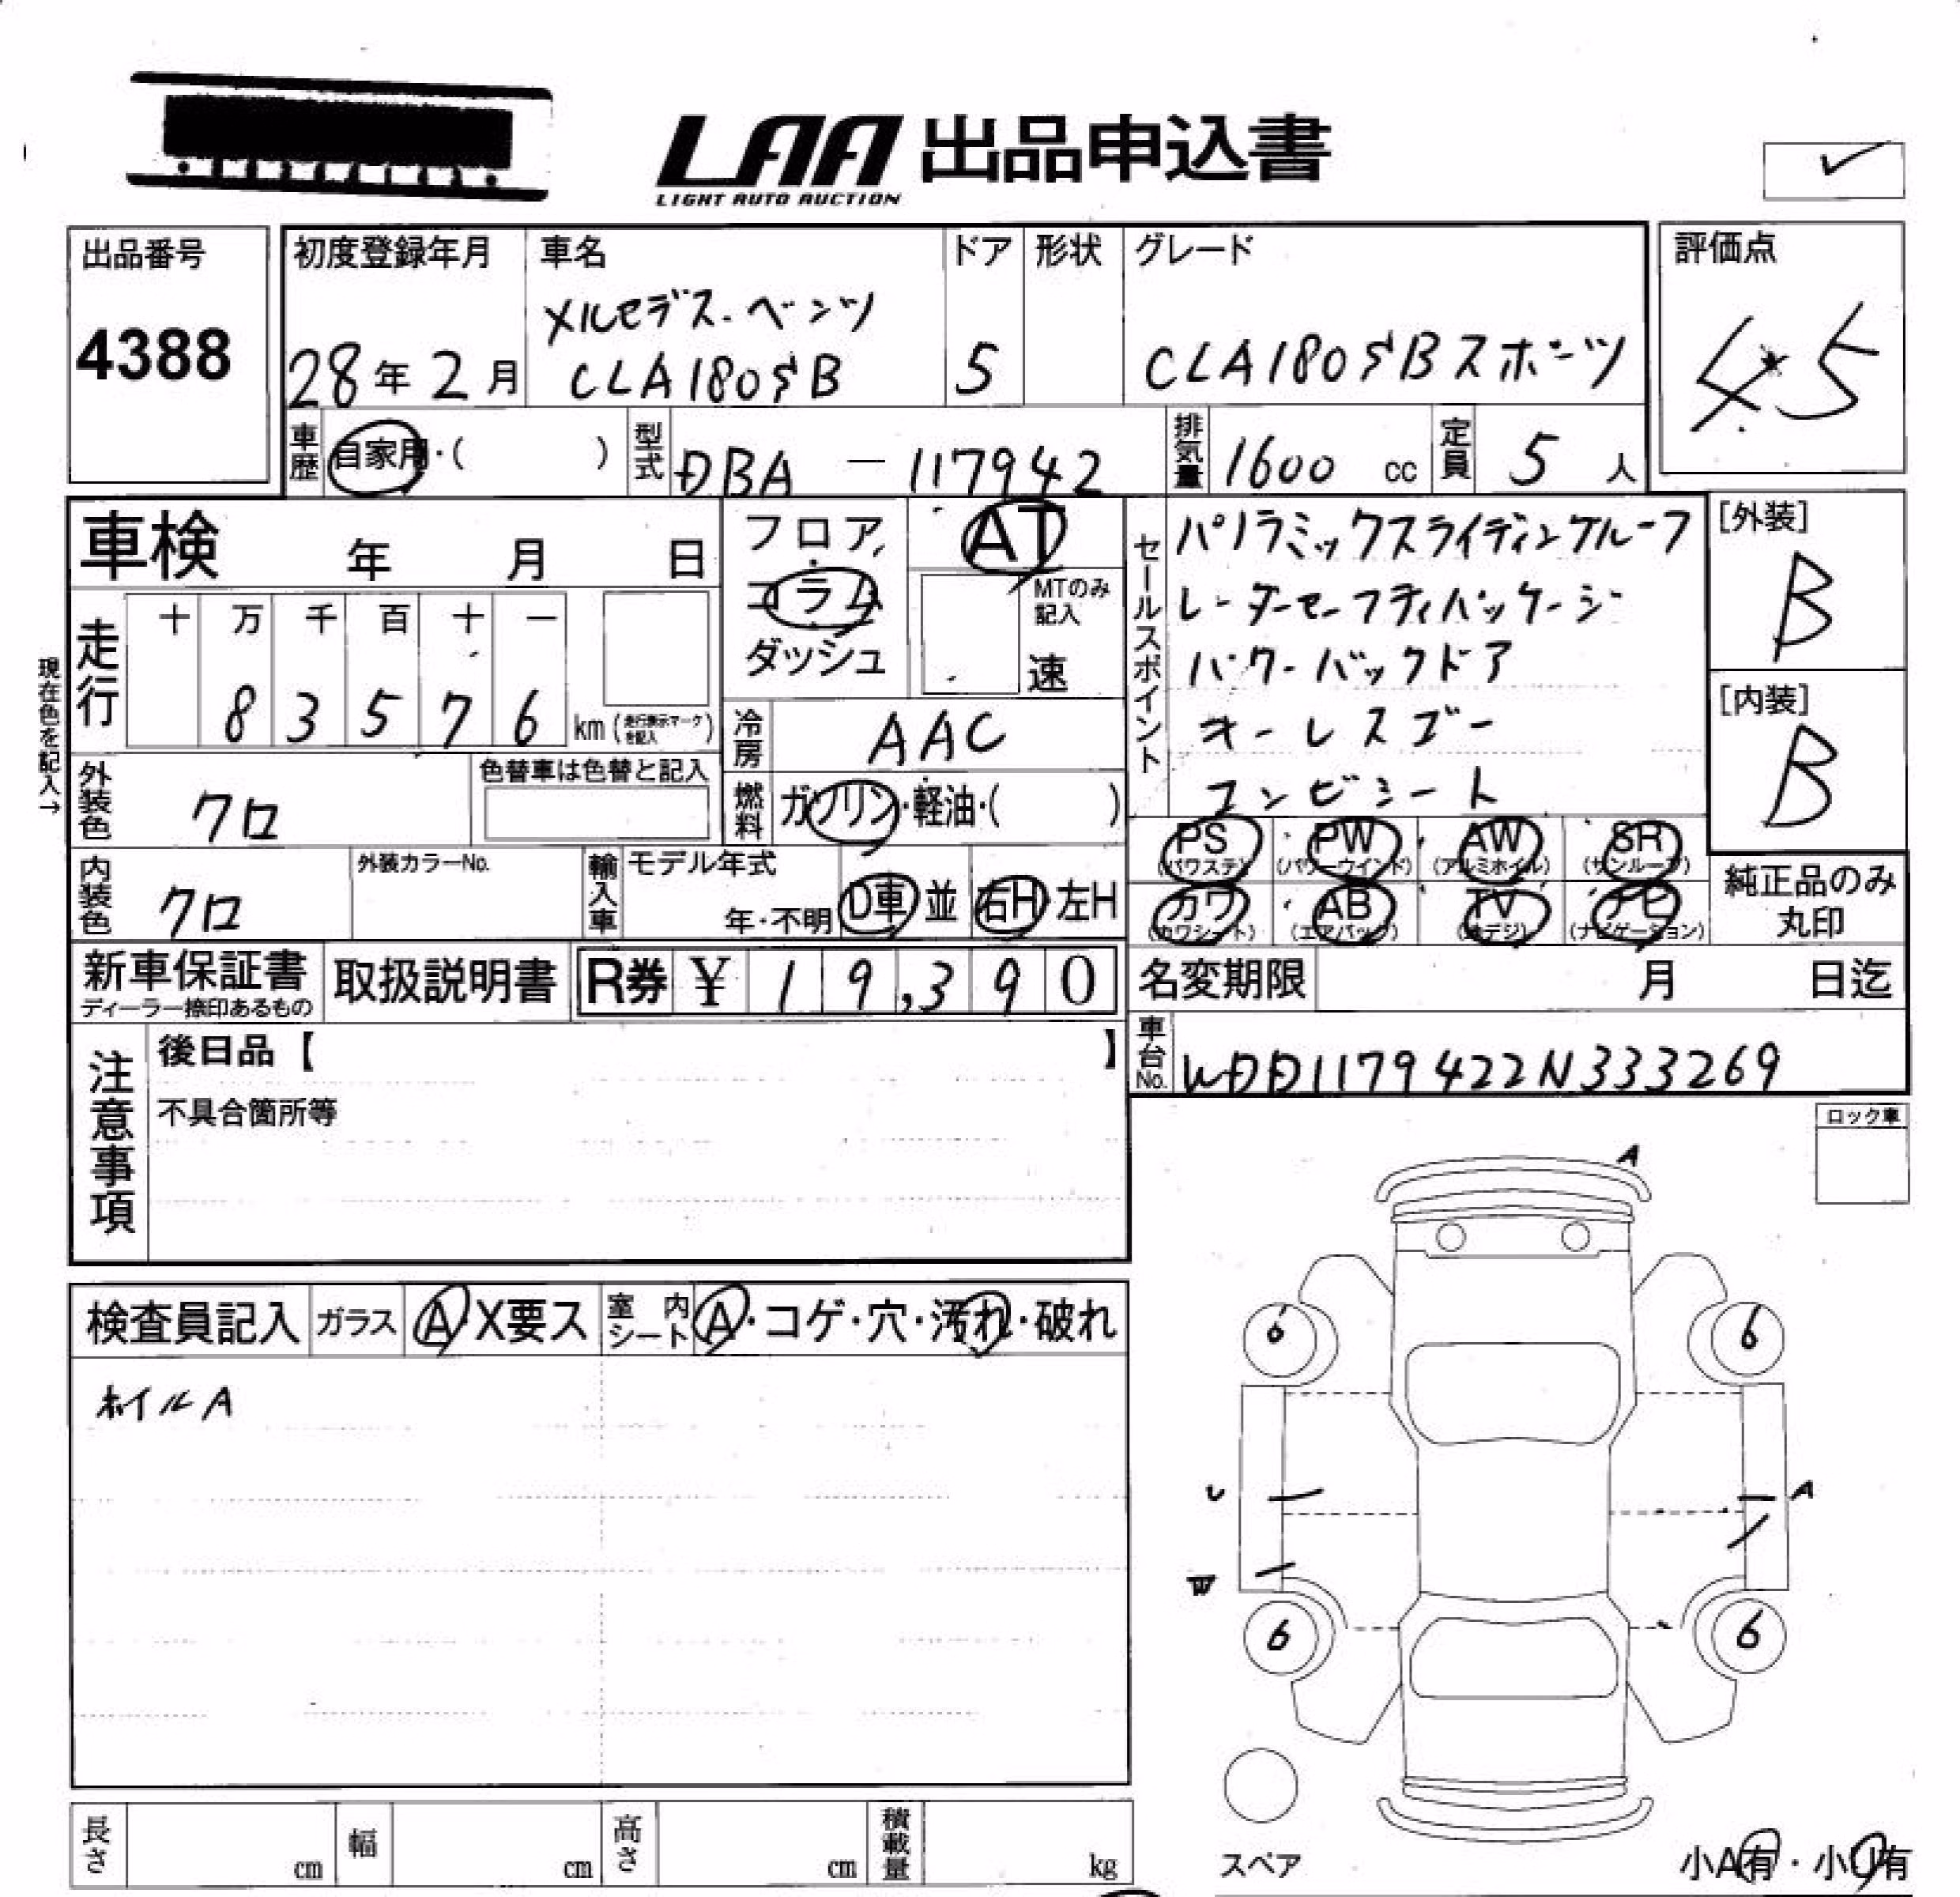 LAA 出品申込書
LIGHT AUTO AUCTION
出品番号
4388
初度登録年月
28年2月
車名
メルセデス・ベンツ
CLA180SB
ドア
5
形状
グレード
CLA180SBスポーツ
評価点
4.5
車歴
自家用・( )
型式
DBA - 117942
排気量
1600 cc
定員
5 人
車検 年 月 日
走行
十 万 千 百 十 一
8 3 5 7 6 km (走行表示マークを記入)
現在色を記入→
外装色
クロ
色替車は色替と記入
内装色
クロ
外装カラーNo.
フロア
コラム
ダッシュ
AT
MTのみ記入
速
冷房
AAC
燃料
ガソリン・軽油・( )
輸入車
モデル年式
年・不明
D車 並
右H・左H
セールスポイント
パノラミックスライディングルーフ
レーダーセーフティパッケージ
パワーバックドア
キーレスゴー
コンビシート
[外装]
B
[内装]
B
PS (パワステ)
PW (パワーウインド)
AW (アルミホイル)
SR (サンルーフ)
カワ (カワシート)
AB (エアバッグ)
TV (地デジ)
ナビ (ナビゲーション)
純正品のみ
丸印
新車保証書
ディーラー捺印あるもの
取扱説明書
R券 ¥ 19,390
名変期限 月 日迄
車台No.
WDD1179422N333269
注意事項
後日品【 】
不具合箇所等
ロック車
検査員記入
ガラス
A・X要ス
室内シート
A・コゲ・穴・汚れ・破れ
ホイルA
A
6
6
U
A
W
6
6
スペア
小A有・小U有
長さ cm
幅 cm
高さ cm
積載量 kg